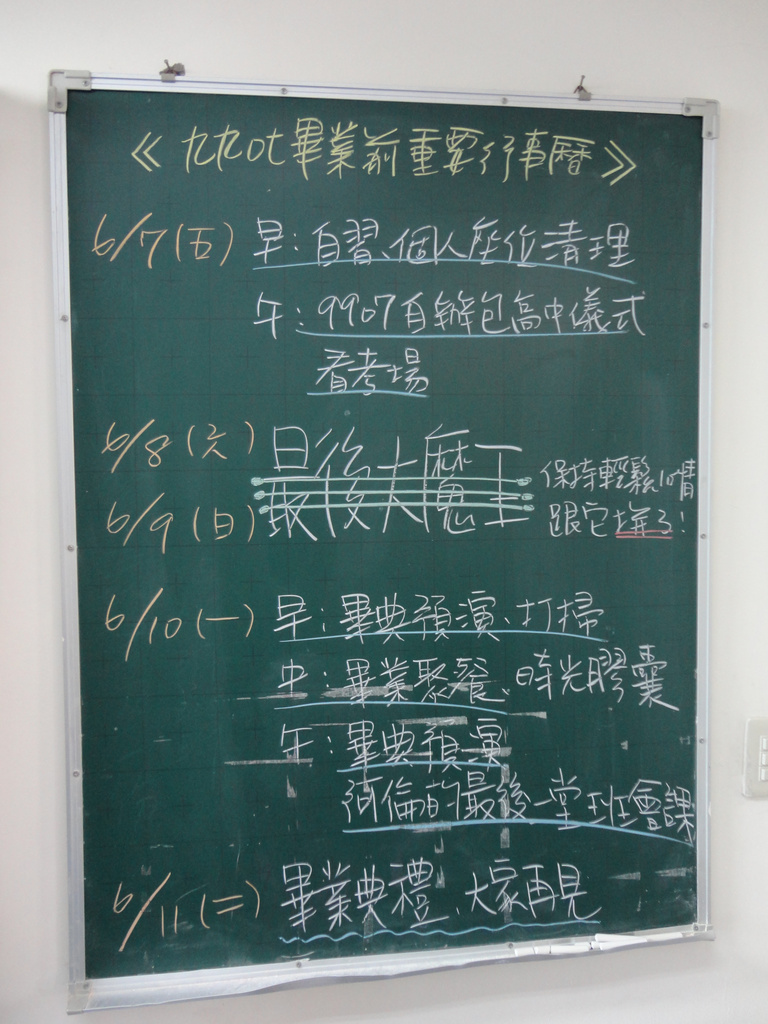 《九九0七畢業前重要行事曆》
6/7(五) 早：自習、個人座位清理
午：9907自辦包高中儀式
看考場
6/8(六)
6/9(日) 最後大魔王
保持輕鬆心情
跟它拼了！
6/10(一) 早：畢典預演、打掃
中：畢業聚餐、時光膠囊
午：畢典預演
阿倫的最後一堂班會課
6/11(二) 畢業典禮、大家再見